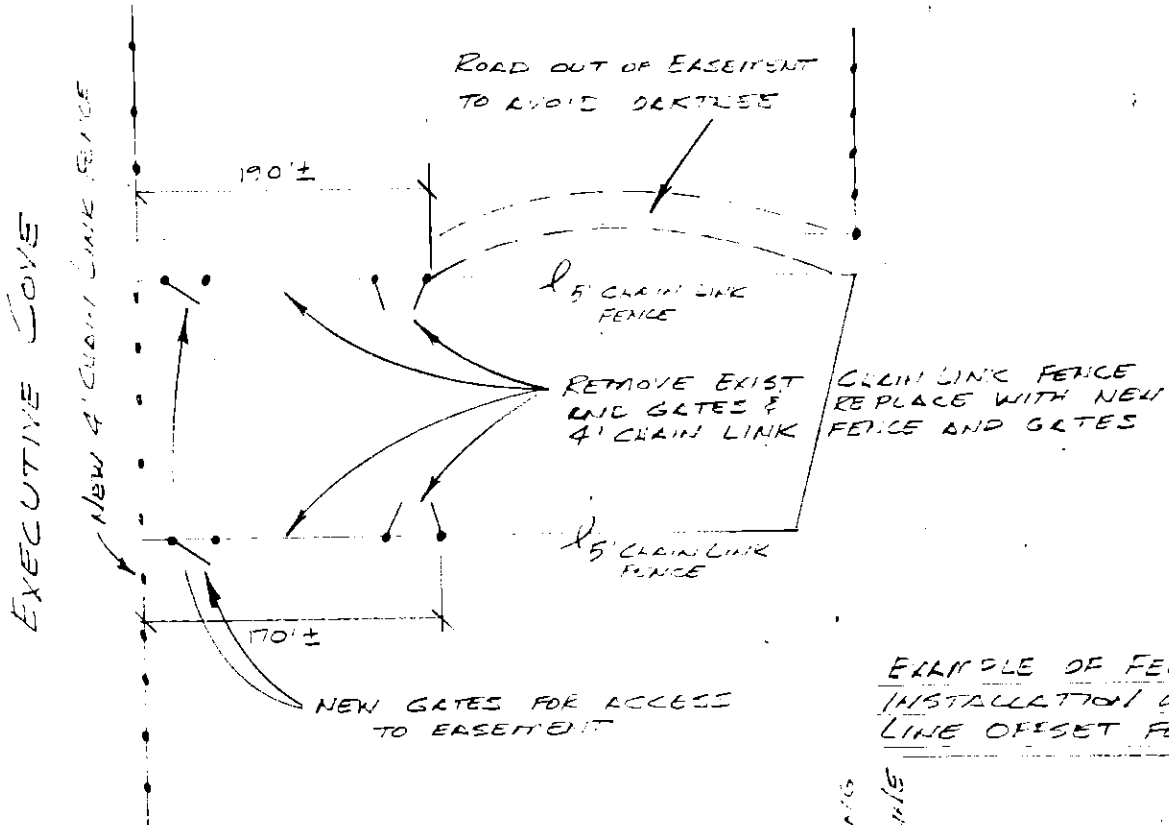 EXECUTIVE COVE
NEW 4' CHAIN LINK FENCE
ROAD OUT OF EASEMENT
TO AVOID OAKTREE
190'±
5' CHAIN LINK
FENCE
REMOVE EXIST
AND GATES &
4' CHAIN LINK
CHAIN LINK FENCE
REPLACE WITH NEW
FENCE AND GATES
5' CHAIN LINK
FENCE
170'±
NEW GATES FOR ACCESS
TO EASEMENT
EXAMPLE OF
INSTALLATION
LINE OFFSET